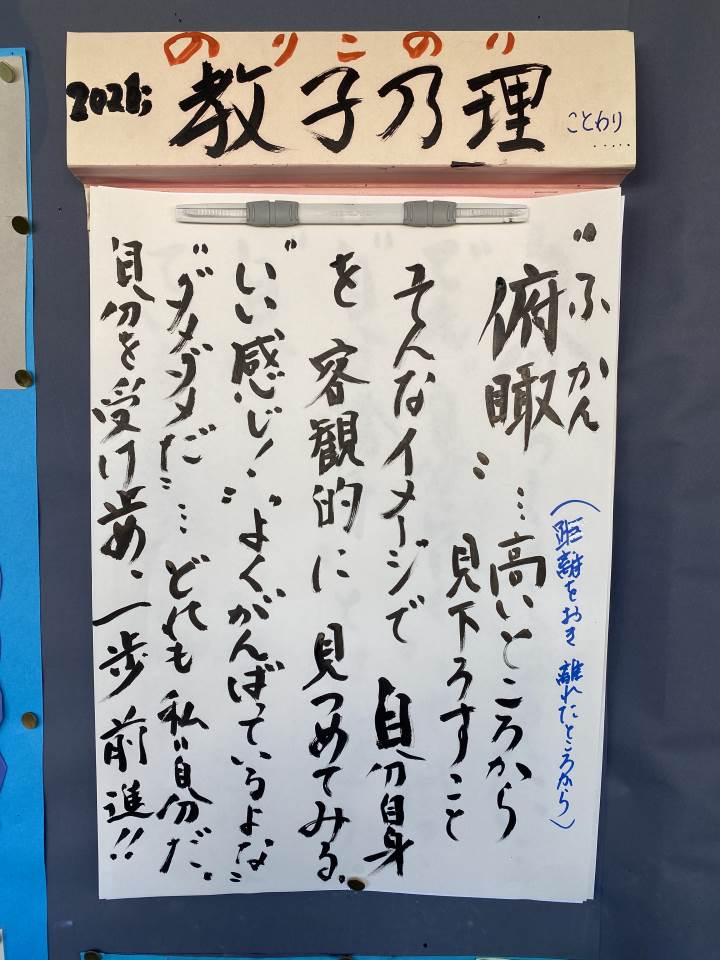 のりこのり
2026; 教子乃理 ことわり
.....
"ふかん
俯瞰"…高いところから
(距離をおき 離れたところから)
見下ろすこと
そんなイメージで 自分自身
を 容観的に 見つめてみる。
"いい感じ!" "よくがんばっているよな"
"ダメダメだ"… どれも 私"自分だ。
自分を受け止め、一歩前進!!